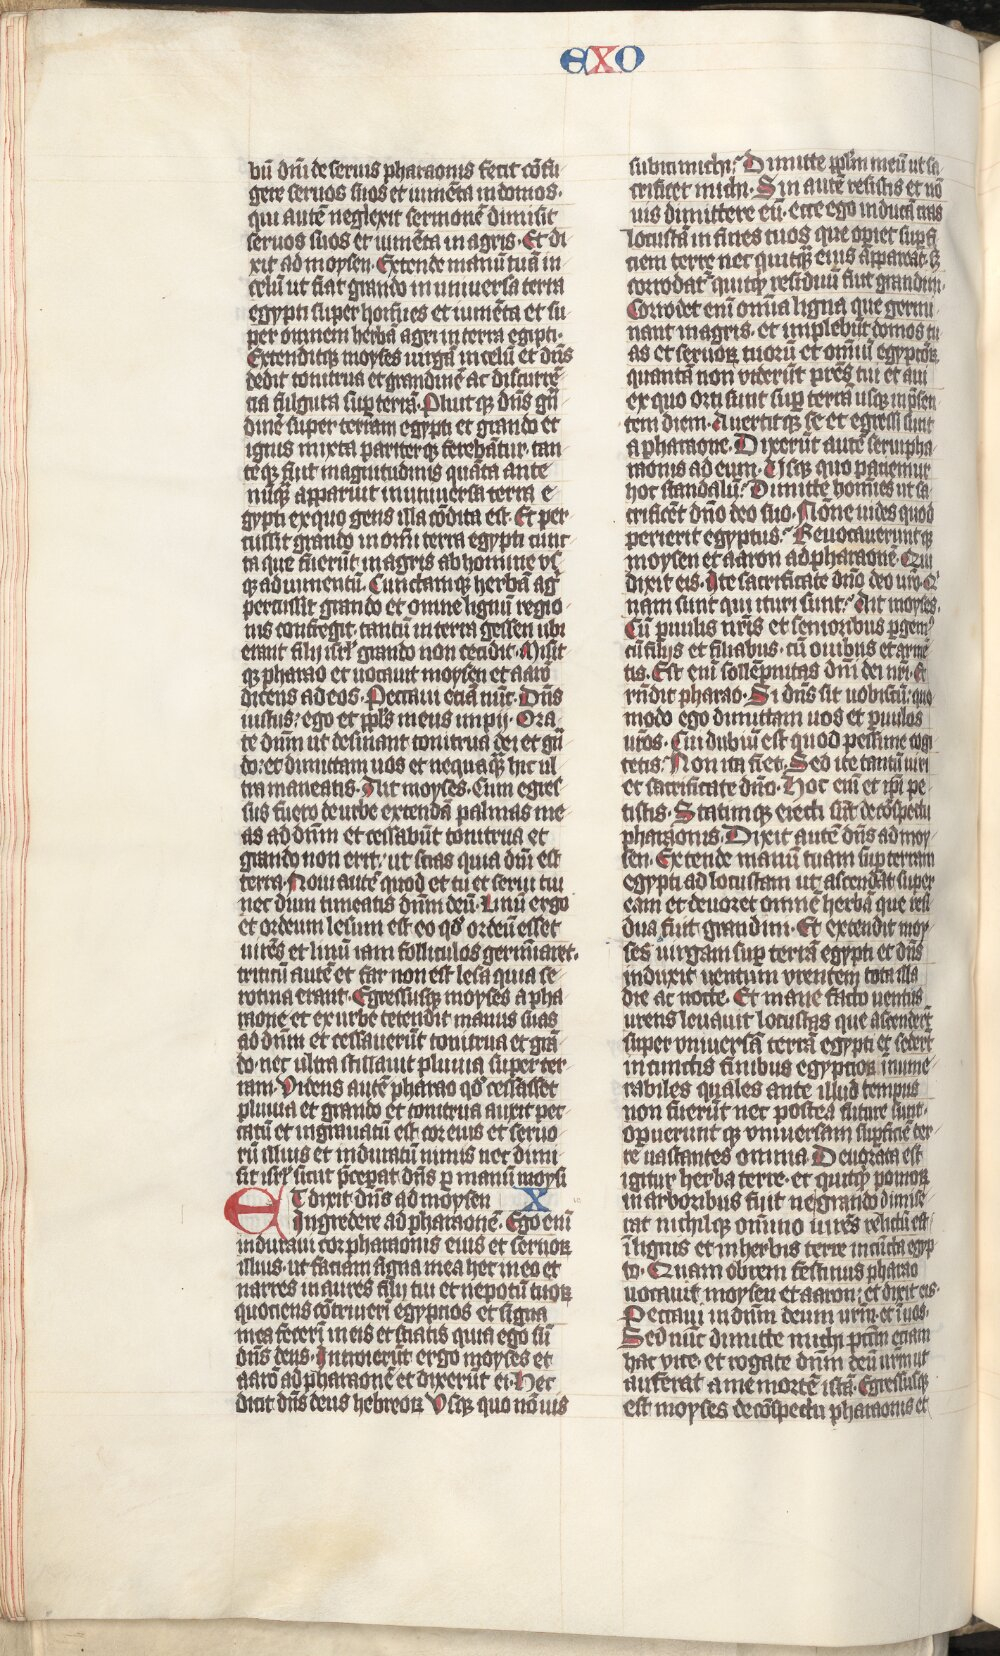 EXO
bū dn̄i de seruis pharaonis fecit cōfu
gere seruos suos et iumēta in domos·
qui autē neglexit sermonē dimisit
seruos suos et iumēta in agris· Et di
xit ad moysen· Extende manū tuā in
celū ut fiat grando in uniuersa terra
egypti super hoīnes et iumēta et su
per omnem herbā agri in terra egipti·
Extenditqꝫ moyses uirgā in celū et dn̄s
dedit tonitrua et grandinē ac discurrē
cia fulgura suꝑ terrā· Pluit qꝫ dn̄s grā
dinē super terram egypti et grando et
ignis mixta pariter qꝫ ferebātur· tan
te qꝫ fuit magnitudinis quāta ante
nūqꝫ apparuit in uniuersa terra e
gypti ex quo gens illa cōdita est· Et per
cussit grando in om̄i terra egypti cunc
ta que fuerūt in agris ab homine vs
qꝫ ad iumentū· Cunctamqꝫ herbā agͥ
percussit grando et omne lignū regio
nis confregit· tantū in terra gessen ubi
erant filij isrl̄ grando non cecidit· Misit
qꝫ pharao et uocauit moysen et aarō
dicens ad eos· Peccaui etiā nūc· Dn̄s
iustus: ego et ppl̄s meus impij· Ora
te dn̄m ut desinant tonitrua dei et grā
do: et dimittam uos et nequaqꝫ hic ul
tra maneatis· Ait moyses· Cum egres
sus fuero de urbe extendā palmas me
as ad dn̄m et cessabūt tonitrua et
grando non erit: ut scias quia dn̄i est
terra· Noui autē quod et tu et serui tui
nec dum timeatis dn̄m deū· Linū ergo
et ordeum lesum est eo qd̄ ordeū esset
uirēs et linū iam folliculos germīaret·
triticū autē et far non est lesa quia se
rotina erant· Egressusqꝫ moyses a pha
raone et ex urbe tetendit manus suas
ad dn̄m et cessauerūt tonitrua et grā
do· nec ultra stillauit pluuia super ter
ram· Videns autē pharao qd̄ cessasset
pluuia et grando et tonitrua auxit pec
catū et ingrauatū est cor eius et seruo
rū illius et induratū nimis nec dimi
sit isrl̄ sicut p̄ceperat dn̄s ꝑ manū moysi
ET dixit dn̄s ad moysen X
Ingredere ad pharaonē· Ego eni
induraui cor pharaonis eius et seruoꝝ
illius· ut faciam signa mea hec in eo et
narres in aures filij tui et nepotū tuoꝝ
quociens cōtriueri egyptios et signa
mea feceri in eis et sciatis quia ego sū
dn̄s deus· Introierūt ergo moyses et
aarō ad pharaonē et dixerūt ei· Hec
dicit dn̄s deus hebreoꝝ Vsqꝫ quo nō uis
subici michi? Dimitte ppl̄m meū ut sa
crificet michi· Sin autē resistis et nō
uis dimittere eū· ecce ego inducā cras
locustā in fines tuos que operiet suꝑfi
ciem terre nec quitqꝫ eius appareat· sꝫ
corrodatʳ quitqꝫ residuū fuit grandini·
Corrodet eni om̄ia ligna que germi
nant in agris· et implebūt domos tu
as et seruoꝝ tuorū et om̄iū egyptioꝝ
quantā non viderūt pr̄es tui et aui
ex quo orti sunt suꝑ terrā usqꝫ in p̄sen
tem diem· Auertit qꝫ se et egressi sunt
a pharaone· Dixerūt autē serui pha
raonis ad eum· Usqꝫ quo patiemur
hoc scandalū? Dimitte homīes ut sa
crificēt dn̄o deo suo· Nōne uides quod
perierit egyptus? Reuocauerunt qꝫ
moysen et aaron ad pharaonē· Qui
dixit eis· Ite sacrificate dn̄o deo vr̄o· Qͥ
nam sunt qui ituri sunt? Ait moyses·
Cū ꝑuulis nr̄is et senioribus ꝑgemꝰ
cū filijs et filiabus· cū ouibus et armē
tis· Est eni sollēpnitas dn̄i dei nr̄i· Et
rn̄dit pharao· Si dn̄s sit uobiscū: quo
modo ego dimittam uos et ꝑuulos
vr̄os· Cui dubiū est quod pessime cogi
tetis? Non ita fiet· Sed ite tantū uiri
et sacrificate dn̄o· Hoc eni et ip̄i pe
tistis· Statimqꝫ eiecti sūt de cōspectu
pharaonis· Dixit autē dn̄s ad moy
sen· Extende manū tuam suꝑ terram
egypti ad locustam ut ascendat super
eam et deuoret omnē herbā que resi
dua fuit grandini· Et extendit moy
ses uirgam suꝑ terrā egypti et dn̄s
induxit uentum vrentem tota illa
die ac nocte· Et mane facto uentus
urens leuauit locustas que ascenderūt
super vniuersā terrā egypti et sederūt
in cunctis finibus egyptioꝝ inume
rabiles quales ante illud tempus
non fuerūt nec postea future sunt·
operuerunt qꝫ vniuersam suꝑficiē ter
re uastantes omnia· Deuorata est
igitur herba terre· et quitqꝫ pomoꝝ
in arboribus fuit que grando dimise
rat nichilqꝫ om̄ino uirēs relictū est
ī lignis et in herbis terre in cūcta egyp
to· Quam obrem festinus pharao
uocauit moysen et aaron: et dixit eis·
Peccaui in dn̄m deum vr̄m· et ī uos·
Sed nūc dimitte michi pctm̄ etiam
hac vice· et rogate dn̄m deū vr̄m ut
auferat a me mortē istā· Egressusqꝫ
est moyses de cōspectu pharaonis et